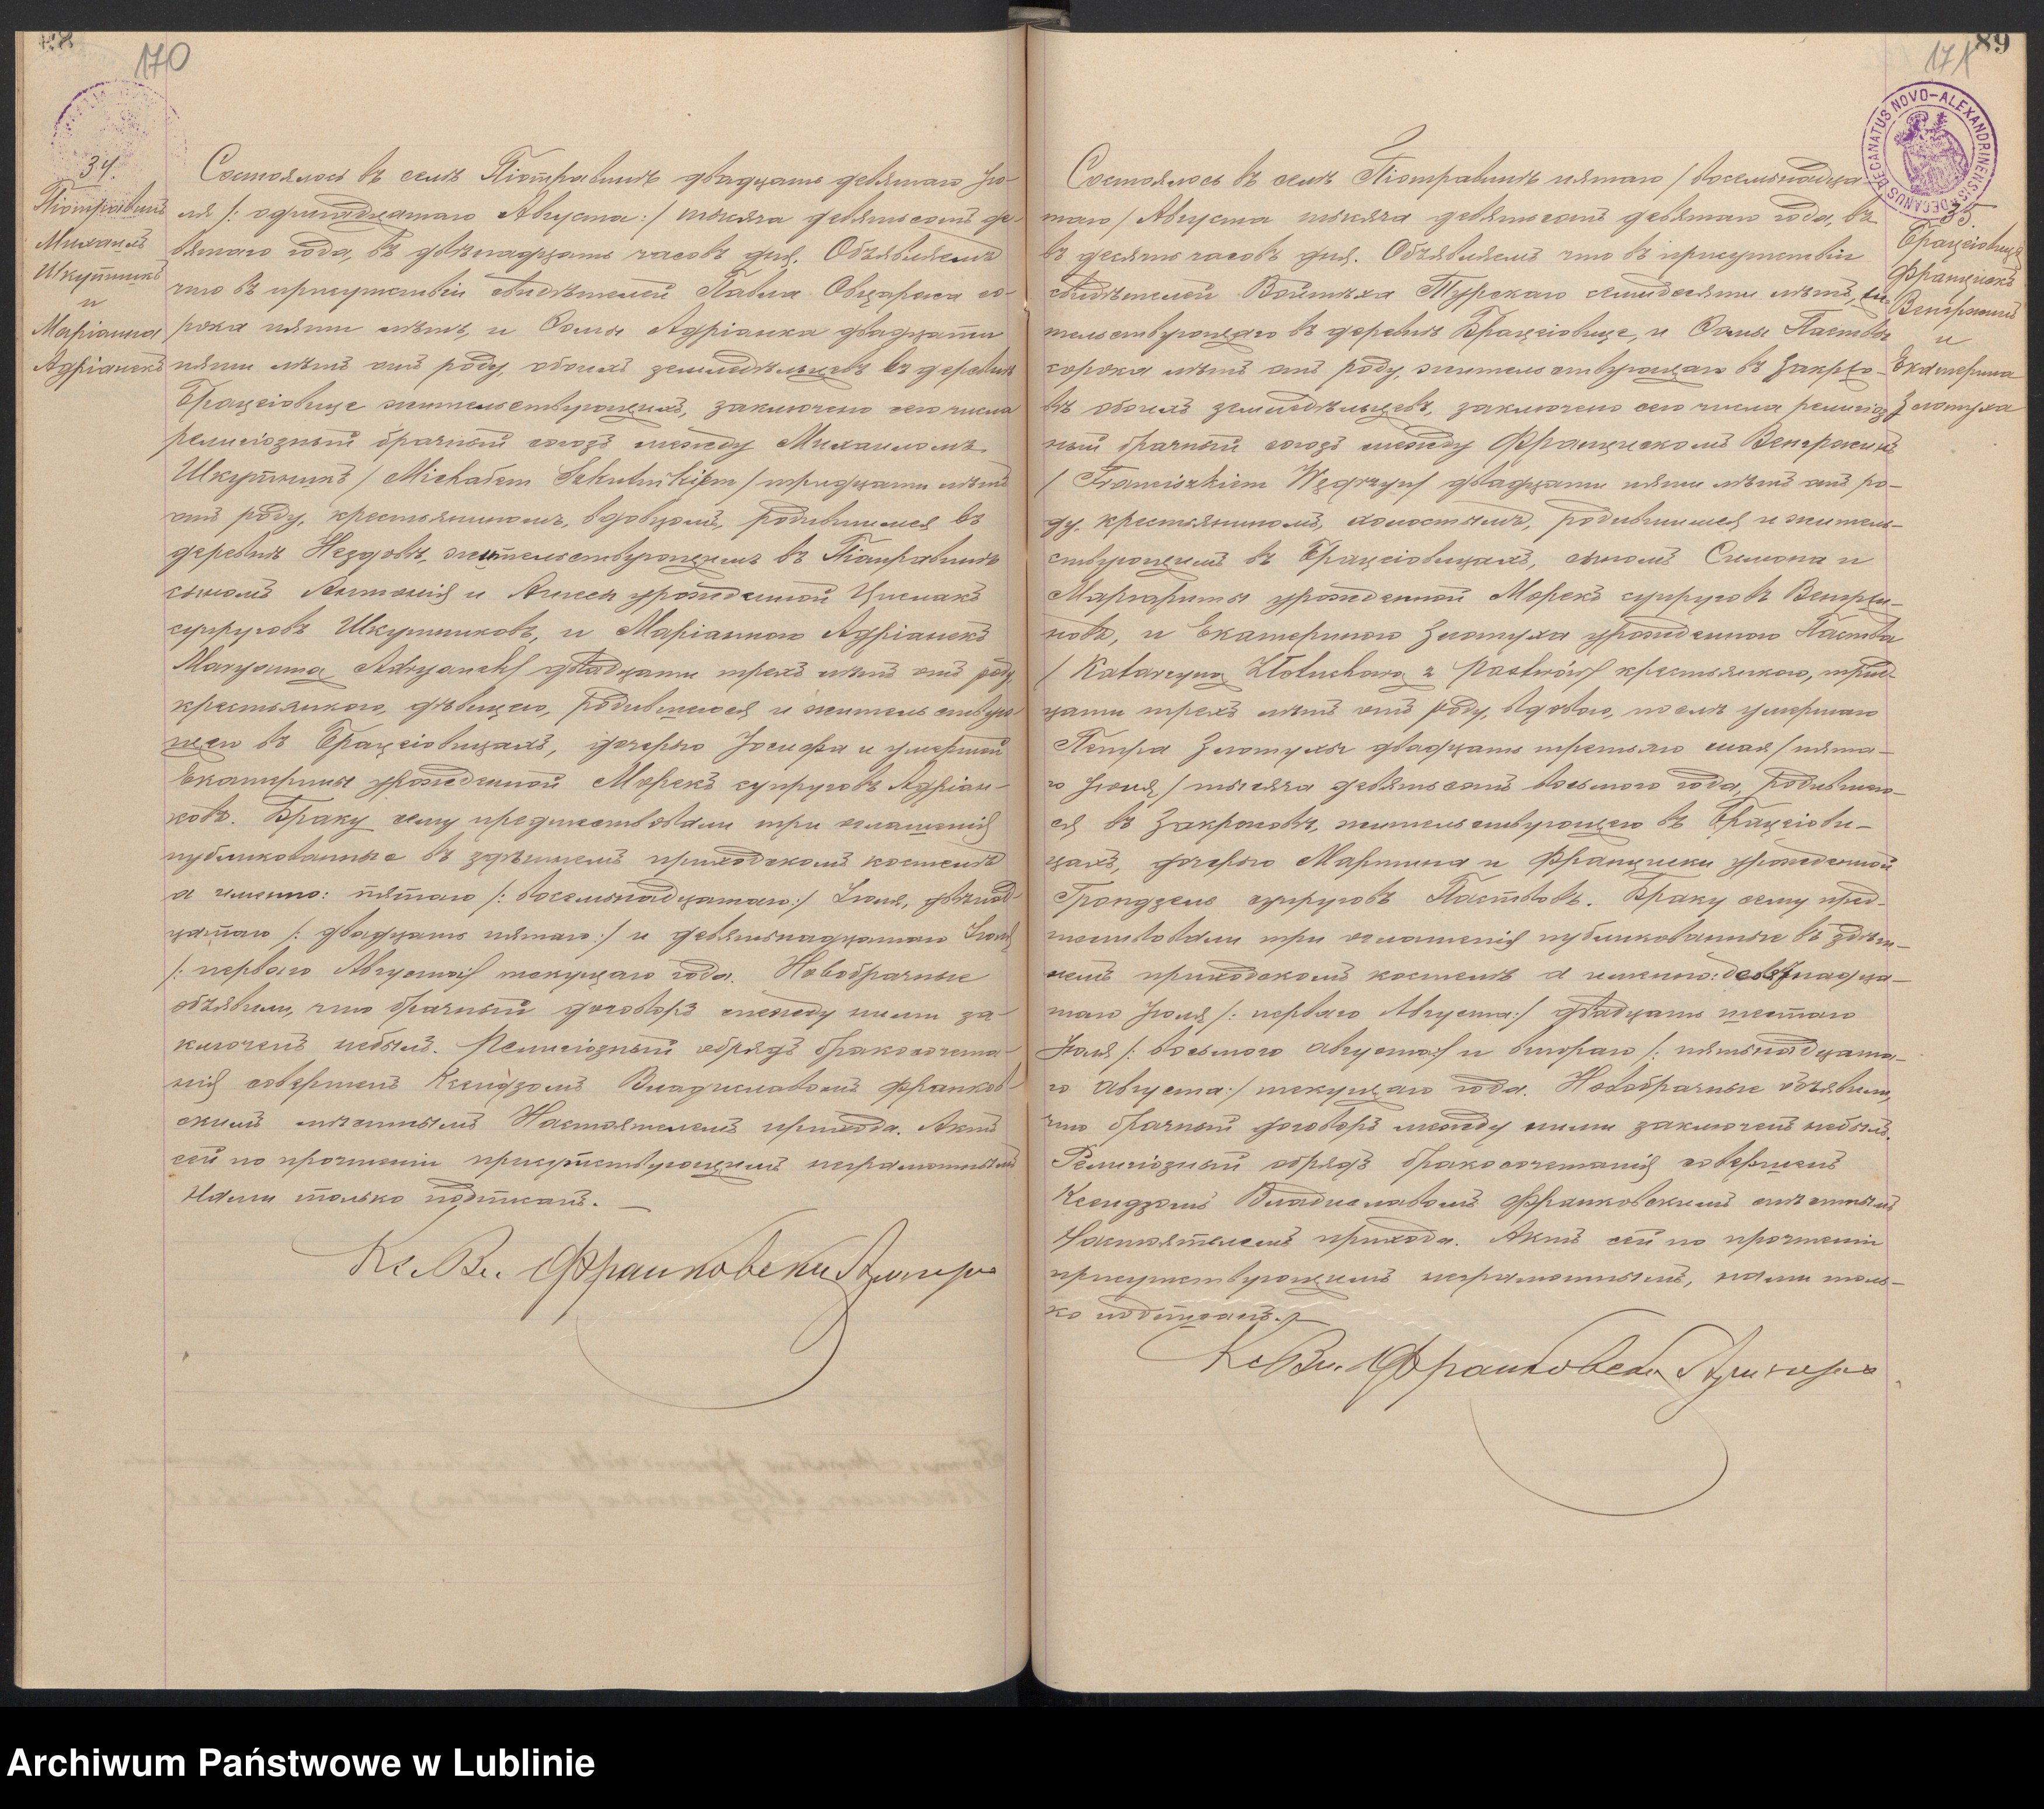 170
34.
Піотравинъ
Михаилъ
Шкутникъ
и
Маріанна
Адріанекъ
Состоялось въ селѣ Піотравинѣ двадцать девятаго Ію-
ля /: одинадцатаго Августа :/ тысяча девятьсотъ де-
вятаго года, въ двѣнадцать часовъ дня. Объявляемъ
что въ присутствіи свидѣтелей Павла Овчарза со-
рока пяти лѣтъ, и Ѳомы Адріанка двадцати
пяти лѣтъ отъ роду, обоихъ земледѣльцевъ въ деревнѣ
Брацеіовице жительствующихъ, заключено сего числа
религіозный брачный союзъ между Михаиломъ
Шкутникъ / Michałem Szkutnikiem / тридцати лѣтъ
отъ роду, крестьяниномъ, вдовцомъ, родившимся въ
деревнѣ Нездовъ, жительствующимъ въ Піотравинѣ
сыномъ Антонія и Агнесы урожденной
супруговъ Шкутниковъ, и Маріанною Адріанекъ
Maryanną Adryanek/ двадцати трехъ лѣтъ отъ роду
крестьянкою, дѣвицею, родившеюся и жительствую-
щею въ Брацеіовицахъ, дочерью Іосифа и умершей
Екатерины урожденной Морекъ супруговъ Адріан-
ковъ. Браку сему предшествовали три оглашенія
публикованные въ здѣшнемъ приходскомъ костелѣ
а именно: пятаго /: восемьнадцатаго :/ Іюля, двѣнад-
цатаго /: двадцать пятаго :/ и девятьнадцатаго Іюля
/: перваго Августа :/ текущаго года. Новобрачные
объявили, что брачный договоръ между ними за-
ключенъ небылъ. Религіозный обрядъ бракосочета-
нія совершенъ Ксендзомъ Владиславомъ Франков-
скимъ мѣстнымъ Настоятелемъ прихода. Актъ
сей по прочтеніи присутствующимъ неграмотнымъ
Нами только подписанъ. —
Кс. Вл. Франковски
171
89
DECANATUS NOVO-ALEXANDRINENSIS DECANUS
35
Брацеіовице
Францискъ
Венгржинъ
и
Екатерина
Злотуха
Состоялось въ селѣ Піотравинѣ пятаго / восемьнадца-
таго / Августа тысяча девятьсотъ девятаго года, въ
въ десять часовъ дня. Объявляемъ что въ присутствіи
свидѣтелей Войтѣха Турскаго семидесяти лѣтъ, жи-
тельствующаго въ деревнѣ Брацеіовице, и Ѳомы Паствы
сорока лѣтъ отъ роду, жительствующаго въ Закрзо-
вѣ обоихъ земледѣльцевъ, заключено сего числа религіоз-
ный брачный союзъ между Францискомъ Венгржинъ
/ Franciszkiem Węgrzyn/ двадцати пяти лѣтъ отъ ро-
ду, крестьяниномъ, холостымъ, родившимся и житель-
ствующимъ въ Брацеіовицахъ, сыномъ Симона и
Маргариты урожденной Морекъ супруговъ Венгржи-
новъ, и Екатериною Злотуха урожденною Паства
/ Katarzyną Złotuchową z Pastwów/ крестьянкою, трид-
цати трехъ лѣтъ отъ роду, вдовою, послѣ умершаго
Петра Злотухы двадцать третьяго мая / пята-
го Іюня / тысяча девятьсотъ восьмого года, родившею-
ся въ Закржовѣ, жительствующею въ Брацеіови-
цахъ, дочерью Мартина и Франциски урожденной
Грондзель супруговъ Паствовъ. Браку сему пред-
шествовали три оглашенія публикованные въ здѣш-
немъ приходскомъ костелѣ а именно: девятнадца-
таго Іюля /: перваго Августа :/ двадцать шестаго
Іюля /: восьмого августа :/ и втораго /: пятьнадцата-
го Августа :/ текущаго года. Новобрачные объявили,
что брачный договоръ между ними заключенъ небылъ.
Религіозный обрядъ бракосочетанія совершенъ
Ксендзомъ Владиславомъ Франковскимъ мѣстнымъ
Настоятелемъ прихода. Актъ сей по прочтеніи
присутствующимъ неграмотнымъ, нами толь-
ко подписанъ. —
Кс Вл. Франковски
Archiwum Państwowe w Lublinie